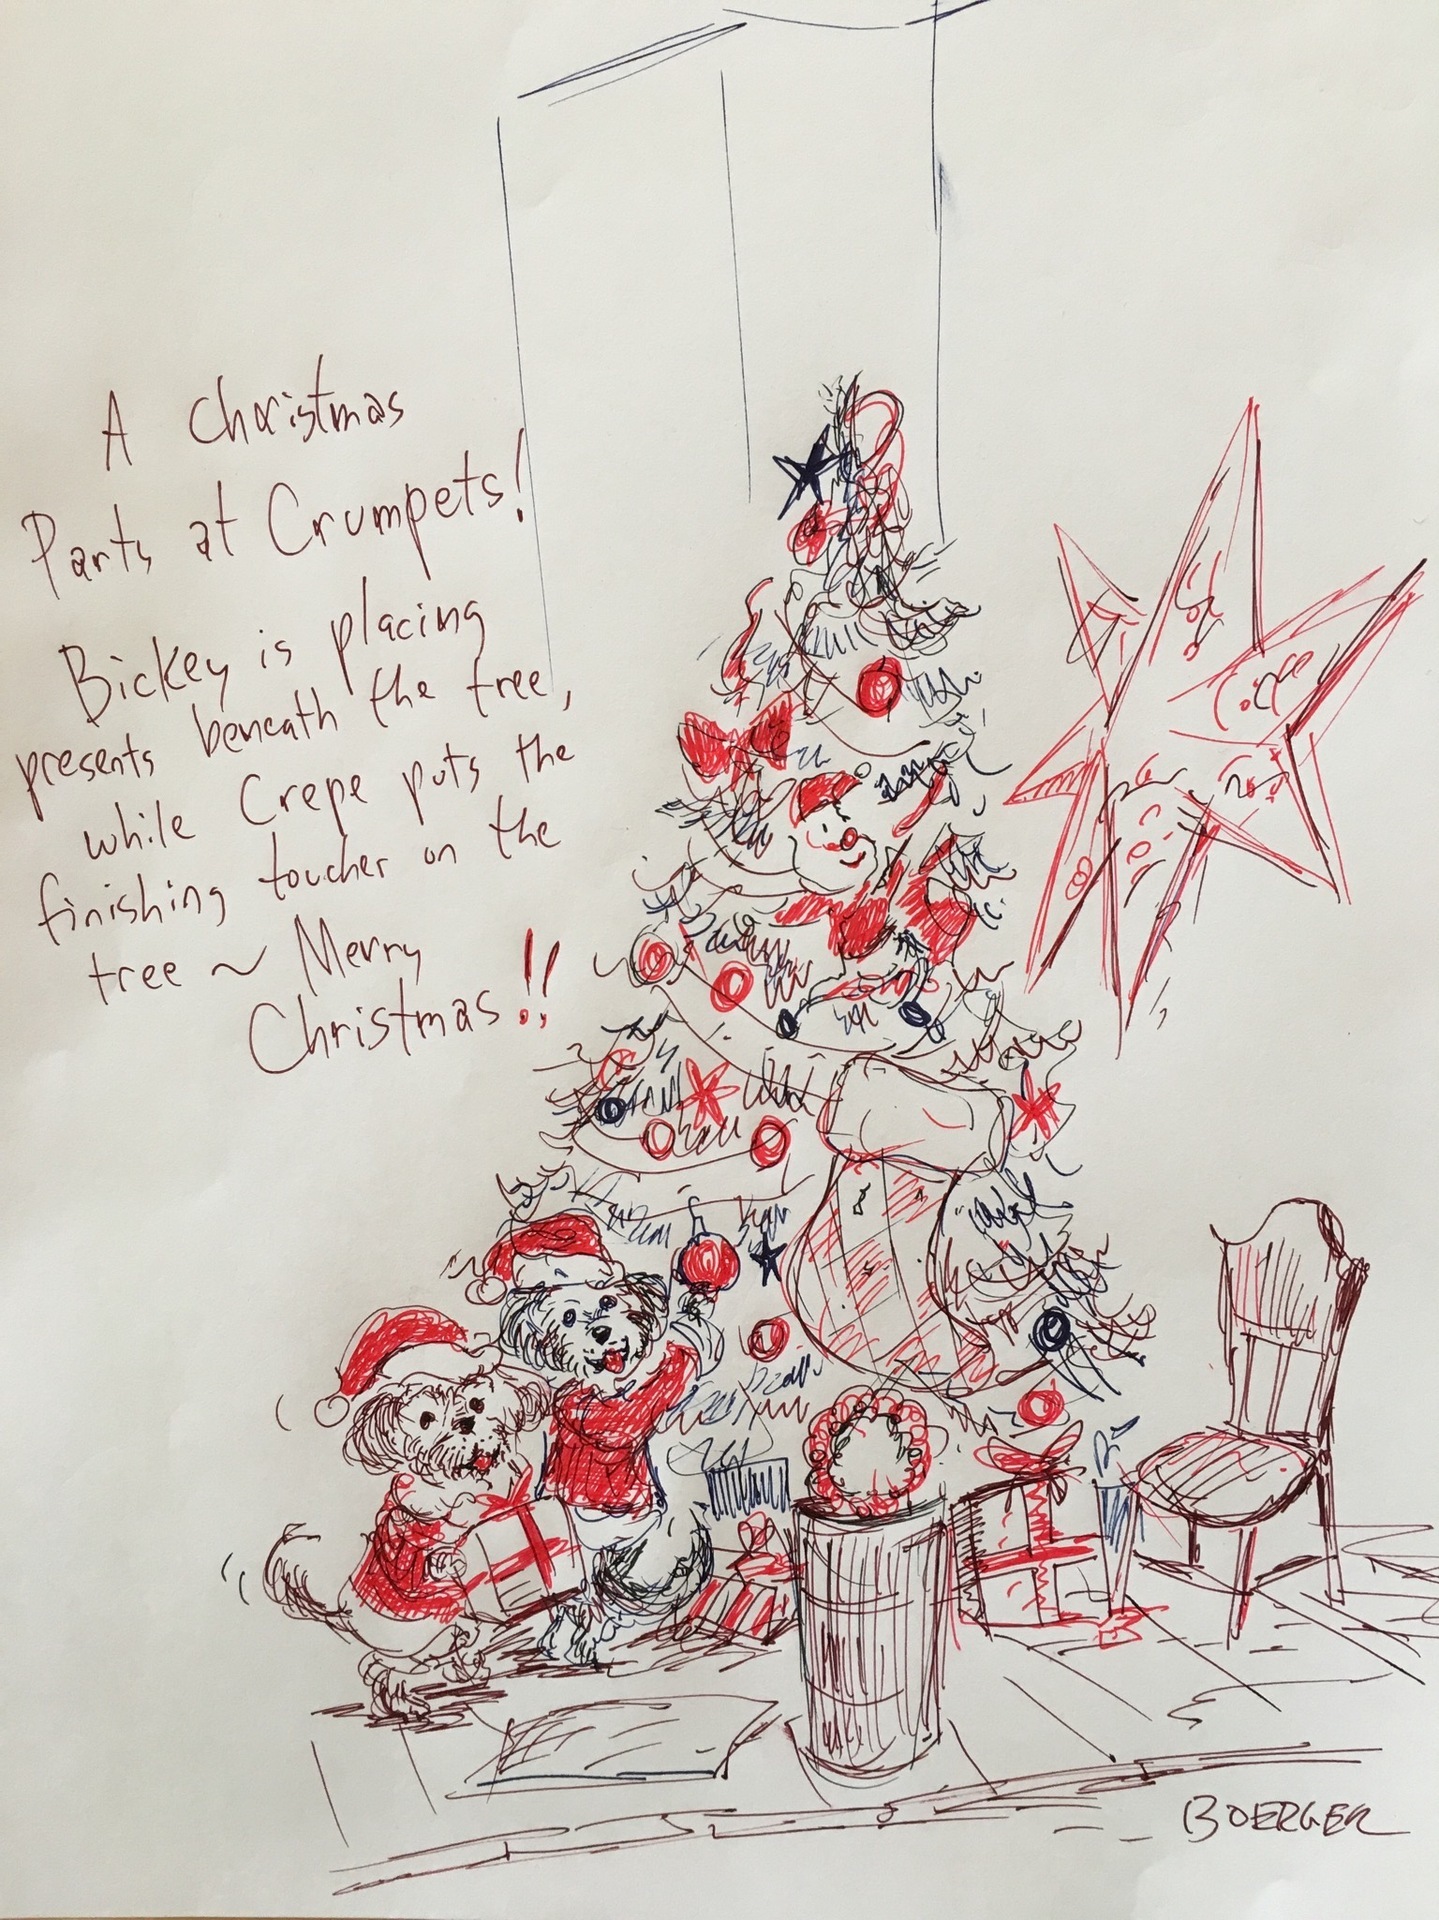 A Christmas
Party at Crumpets!
Bickey is placing
presents beneath the tree,
while Crepe puts the
finishing toucher on the
tree ~ Merry
Christmas !!
BOERGER